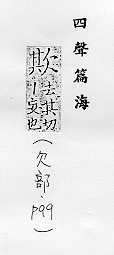 四聲篇海
去其切
也
(欠部.p99)